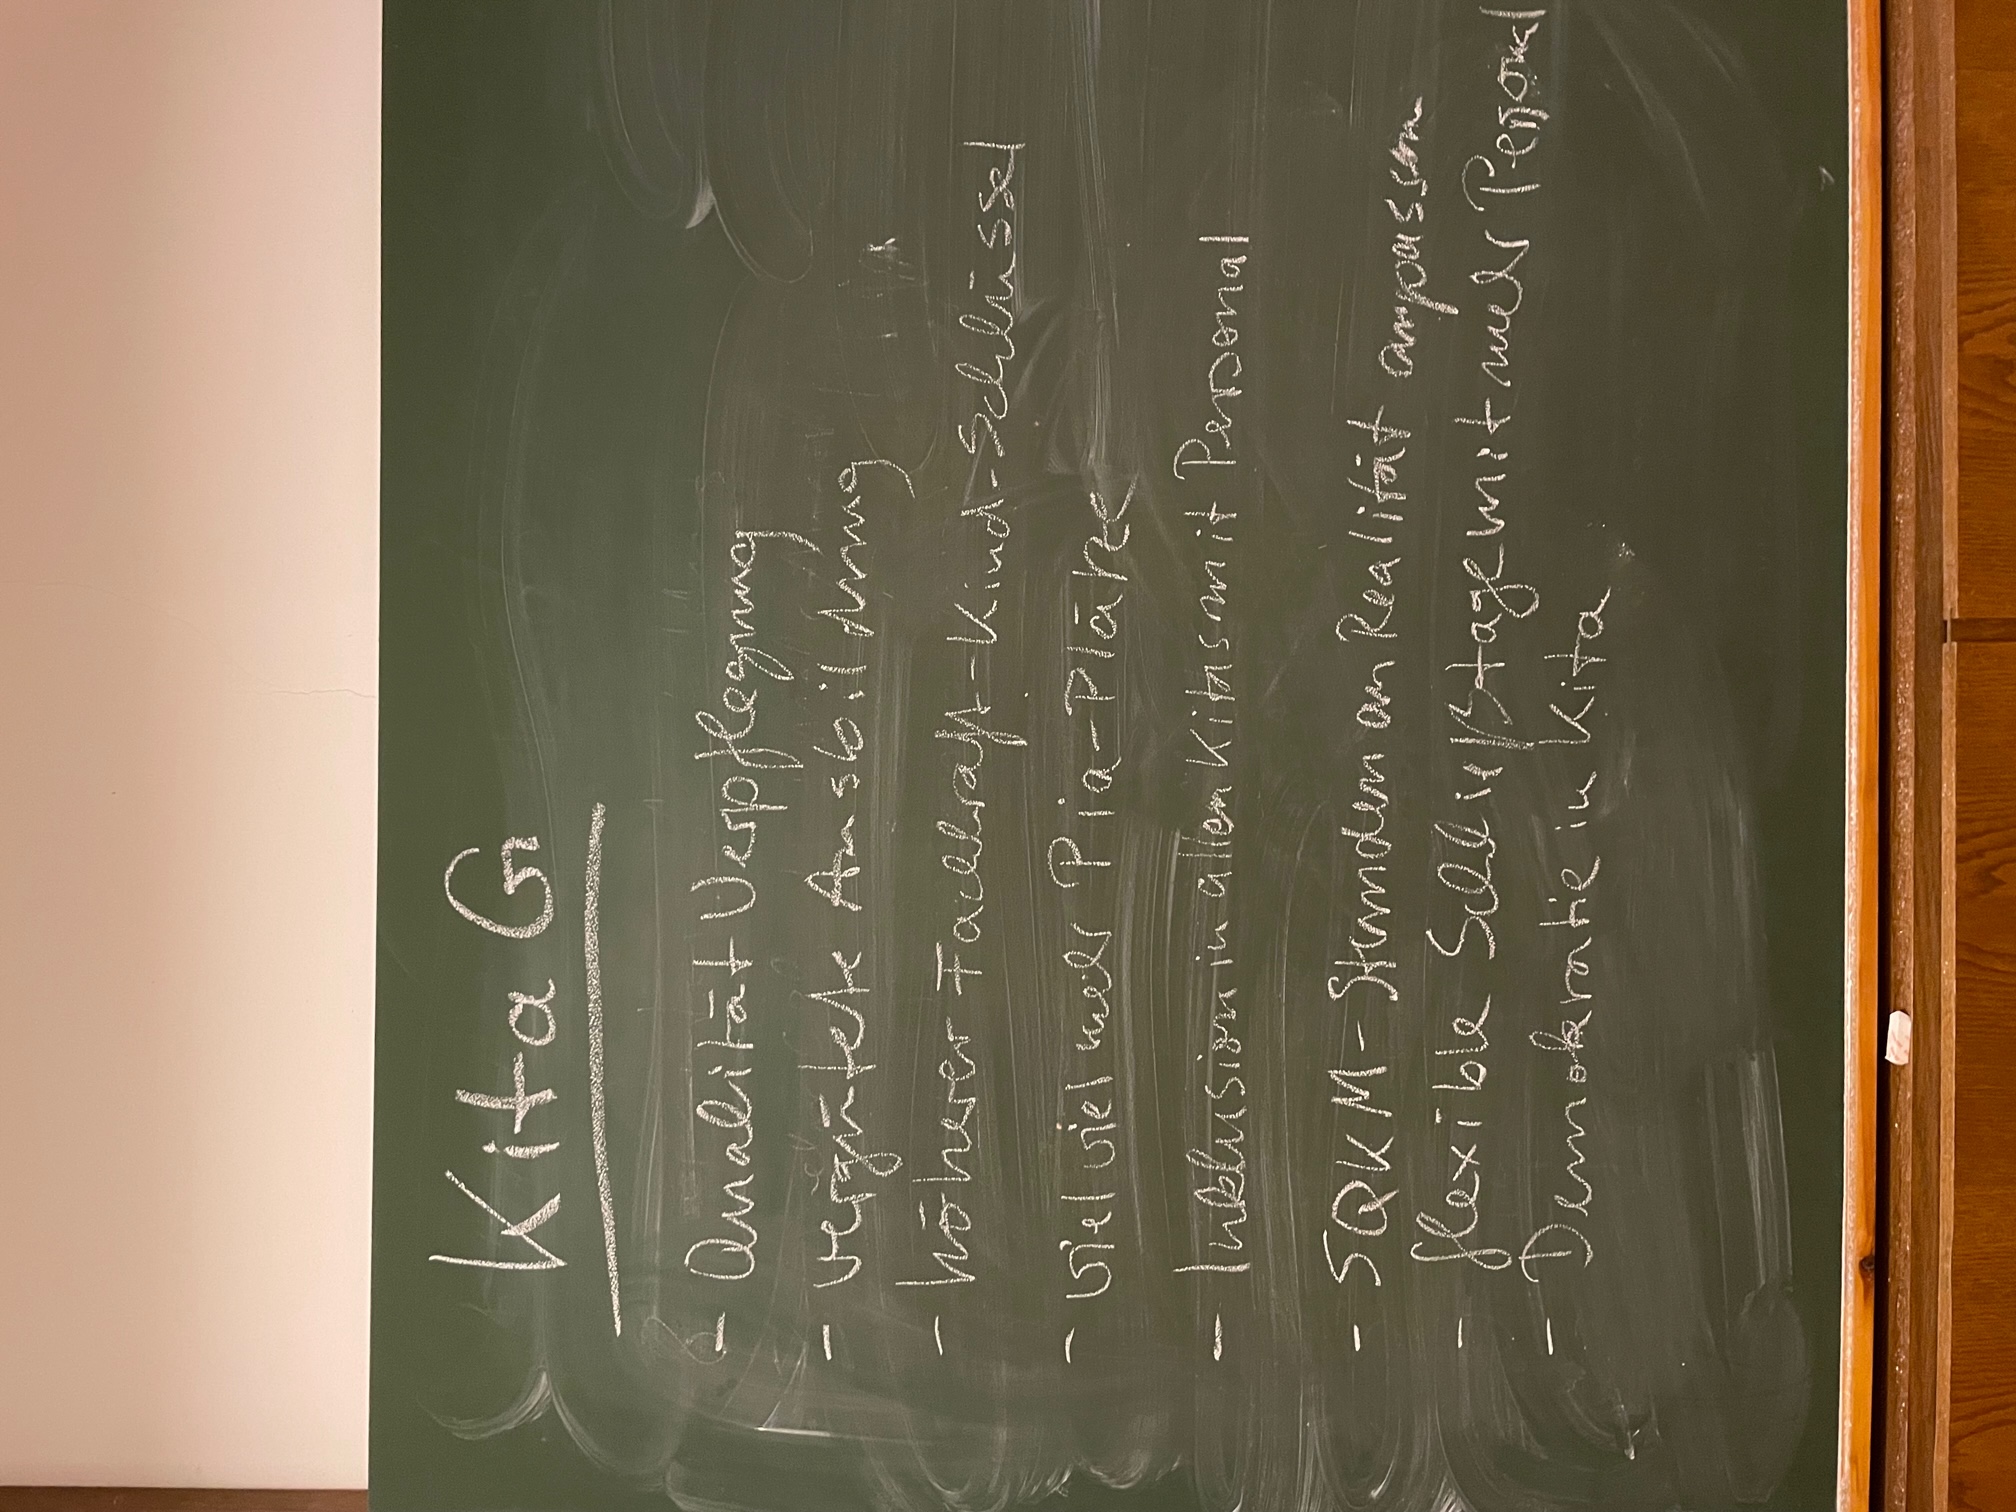 Kita G
- Qualität Verpflegung
- vergütete Ausbildung
- höherer Fachkraft-Kind-Schlüssel
- viel viel mehr Pia-Plätze
- Inklusion in allen Kitas mit Personal
- SQKM-Stunden an Realität anpassen
- flexible Schließtage mit mehr Personal
- Demokratie in Kita